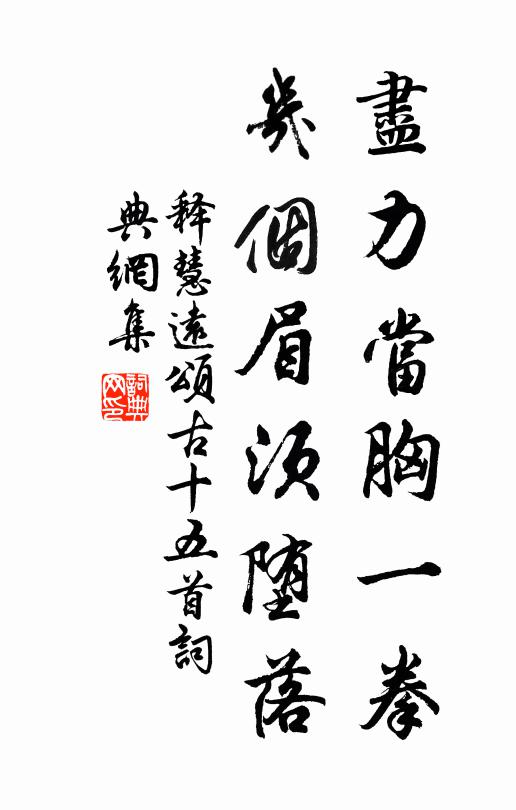 盡力當胸一拳
幾個眉須墮落
释慧遠頌古十五首詞
典網集
詞典网印